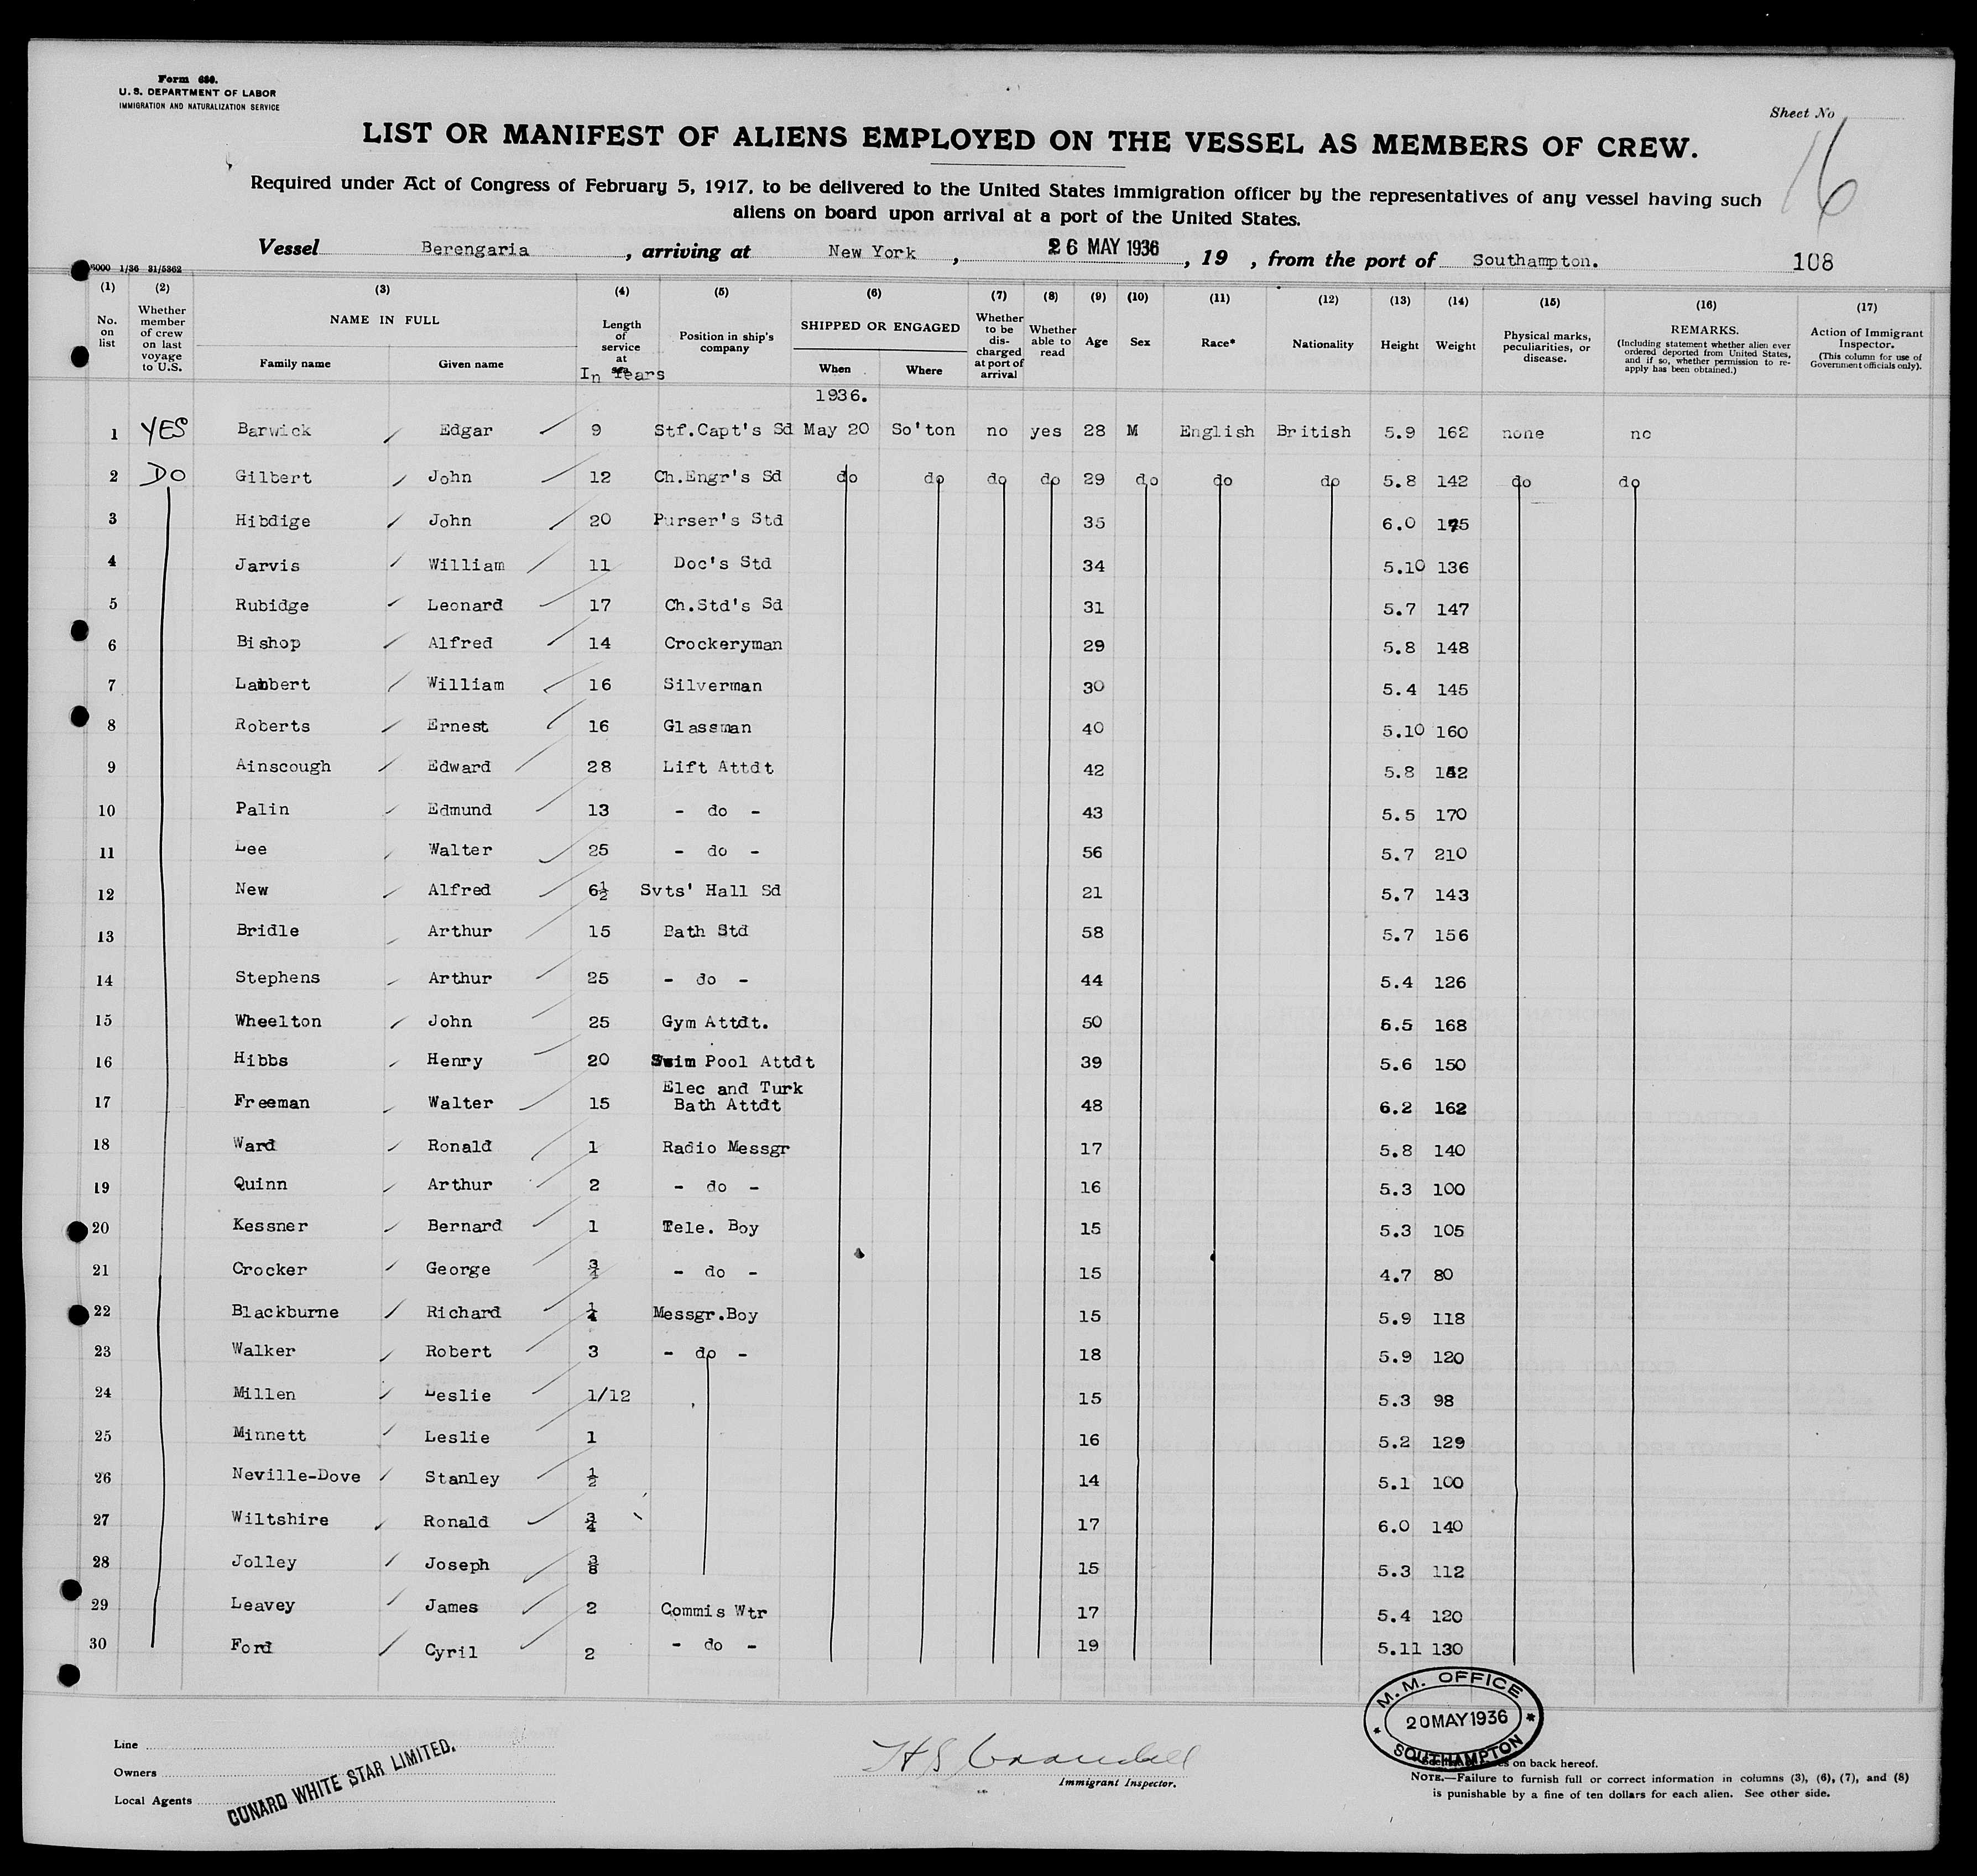 Form 680.
U. S. DEPARTMENT OF LABOR
IMMIGRATION AND NATURALIZATION SERVICE
Sheet No
16
LIST OR MANIFEST OF ALIENS EMPLOYED ON THE VESSEL AS MEMBERS OF CREW.
Required under Act of Congress of February 5, 1917, to be delivered to the United States immigration officer by the representatives of any vessel having such
aliens on board upon arrival at a port of the United States.
Vessel Berengaria , arriving at New York , 26 MAY 1936 , 19 , from the port of Southampton. 108
1/36 31/5362
(1) (2) (3) (4) (5) (6) (7) (8) (9) (10) (11) (12) (13) (14) (15) (16) (17)
No. on list Whether member of crew on last voyage to U.S. NAME IN FULL Family name Given name Length of service at sea In Years Position in ship's company SHIPPED OR ENGAGED When Where Whether to be discharged at port of arrival Whether able to read Age Sex Race* Nationality Height Weight Physical marks, peculiarities, or disease. REMARKS. (Including statement whether alien ever ordered deported from United States, and if so, whether permission to re-apply has been obtained.) Action of Immigrant Inspector. (This column for use of Government officials only).
1936.
1 YES Barwick Edgar 9 Stf.Capt's Sd May 20 So'ton no yes 28 M English British 5.9 162 none no
2 DO Gilbert John 12 Ch.Engr's Sd do do do do 29 do do do 5.8 142 do do
3 Hibdige John 20 Purser's Std 35 6.0 175
4 Jarvis William 11 Doc's Std 34 5.10 136
5 Rubidge Leonard 17 Ch.Std's Sd 31 5.7 147
6 Bishop Alfred 14 Crockeryman 29 5.8 148
7 Lambert William 16 Silverman 30 5.4 145
8 Roberts Ernest 16 Glassman 40 5.10 160
9 Ainscough Edward 28 Lift Attdt 42 5.8
10 Palin Edmund 13 - do - 43 5.5 170
11 Lee Walter 25 - do - 56 5.7 210
12 New Alfred 6½ Svts' Hall Sd 21 5.7 143
13 Bridle Arthur 15 Bath Std 58 5.7 156
14 Stephens Arthur 25 - do - 44 5.4 126
15 Wheelton John 25 Gym Attdt. 50 6.5 168
16 Hibbs Henry 20 Swim Pool Attdt 39 5.6 150
17 Freeman Walter 15 Elec and Turk Bath Attdt 48 6.2 162
18 Ward Ronald 1 Radio Messgr 17 5.8 140
19 Quinn Arthur 2 - do - 16 5.3 100
20 Kessner Bernard 1 Tele. Boy 15 5.3 105
21 Crocker George ¾ - do - 15 4.7 80
22 Blackburne Richard ¼ Messgr.Boy 15 5.9 118
23 Walker Robert 3 - do - 18 5.9 120
24 Millen Leslie 1/12 15 5.3 98
25 Minnett Leslie 1 16 5.2 129
26 Neville-Dove Stanley ½ 14 5.1 100
27 Wiltshire Ronald ¾ 17 6.0 140
28 Jolley Joseph ⅜ 15 5.3 112
29 Leavey James 2 Commis Wtr 17 5.4 120
30 Ford Cyril 2 - do - 19 5.11 130
M. M. OFFICE
20 MAY 1936
SOUTHAMPTON
Line
Owners
Local Agents
CUNARD WHITE STAR LIMITED.
Immigrant Inspector.
on back hereof.
NOTE.—Failure to furnish full or correct information in columns (3), (6), (7), and (8)
is punishable by a fine of ten dollars for each alien. See other side.